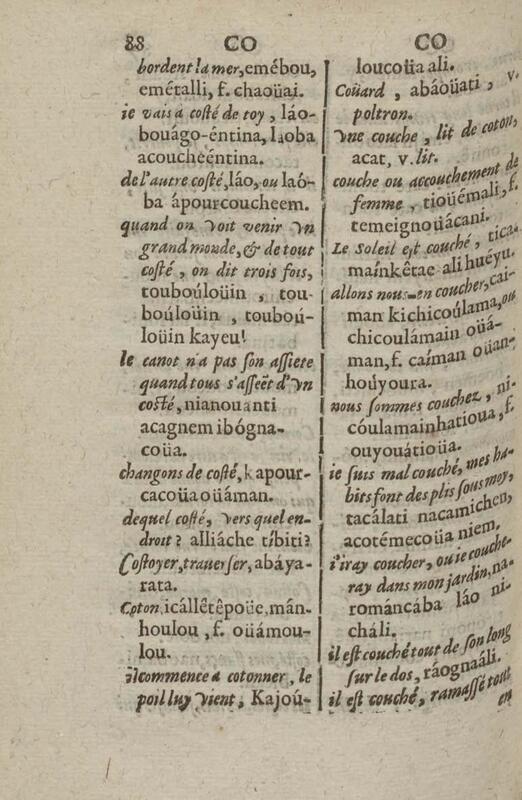 88 CO CO
bordent la mer, emébou,
emétalli, f. chaoüai.
ie vais a costé de toy, láo-
bouágo-éntina, laoba
acoucheéntina.
de l'autre costé, láo, ou laó-
ba ápourcoucheem.
quand on voit venir vn
grand monde, & de tout
costé, on dit trois fois,
touboúloüin, tou-
boúloüin, touboú-
loüin kayeu!
le canot n'a pas son assiete
quand tous s'asseët d'vn
costé, nianouanti
acagnem ibógna-
coüa.
changons de costé, kapour-
cacoüa oüáman.
dequel costé, vers quel en-
droit? alliáche tíbiti?
Costoyer, trauerser, abáya-
rata.
Coton, icállêtêpoüe, mán-
houlou, f. oüámou-
lou.
il commence a cotonner, le
poil luy vient, Kajoú-
loucoüa ali.
Coüard, abáoüati, v.
poltron.
Vne couche, lit de coton,
acat, v. lit.
couche ou accouchement de
femme, tioüémali, f.
temeignoüácani.
Le Soleil est couché, tica-
maínkêtae ali huéyu.
allons nous-en coucher, cai-
man kichicoúlama, ou
chicoulámain oüá-
man, f. caíman oüan-
hoúyoura.
nous sommes couchez, ni-
cóulamainhatioua, f.
ouyouátioüa.
ie suis mal couché, mes ha-
bits font des plis sous moy,
tacálati nacamichen,
acotémecoüa niem.
i'iray coucher, ou ie couche-
ray dans mon jardin, na-
románcába láo ni-
cháli.
il est couché tout de son long
sur le dos, ráognaáli.
il est couché, ramassé tout
en